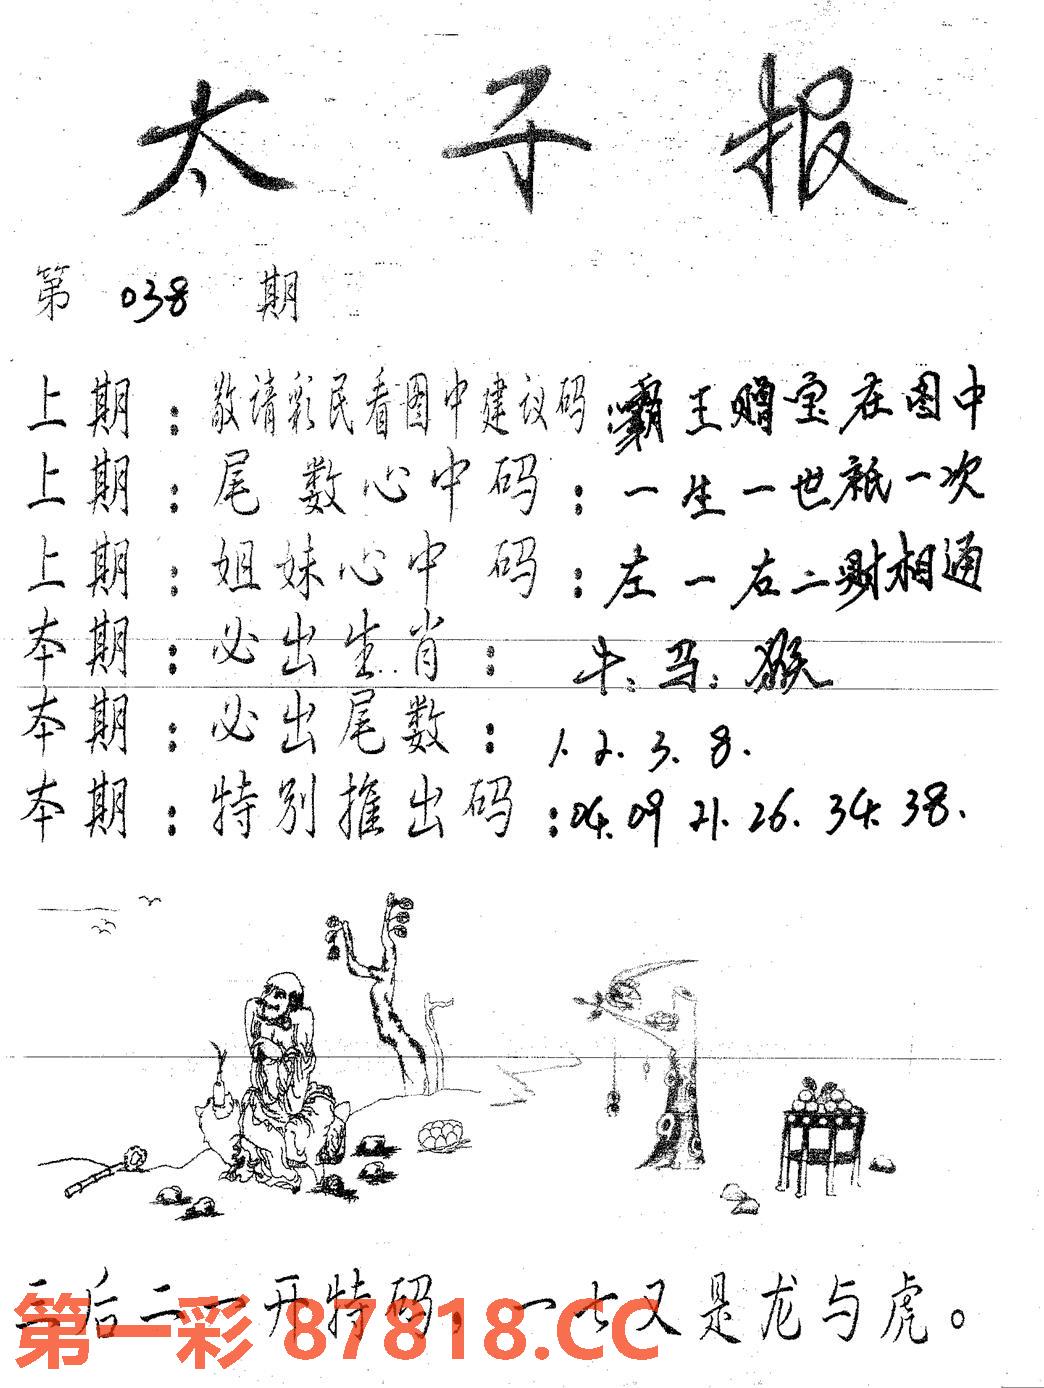 太子报
第 038 期
上期：敬请彩民看图中建议码：霸王赠宝在图中
上期：尾数心中码：一生一世祇一次
上期：姐妹心中码：左一右二财相通
本期：必出生肖：牛.马.猴
本期：必出尾数：1.2.3.8.
本期：特别推出码：04.09 21.26.34.38.
三后二一开特码，一七又是龙与虎。
第一彩 87818.CC